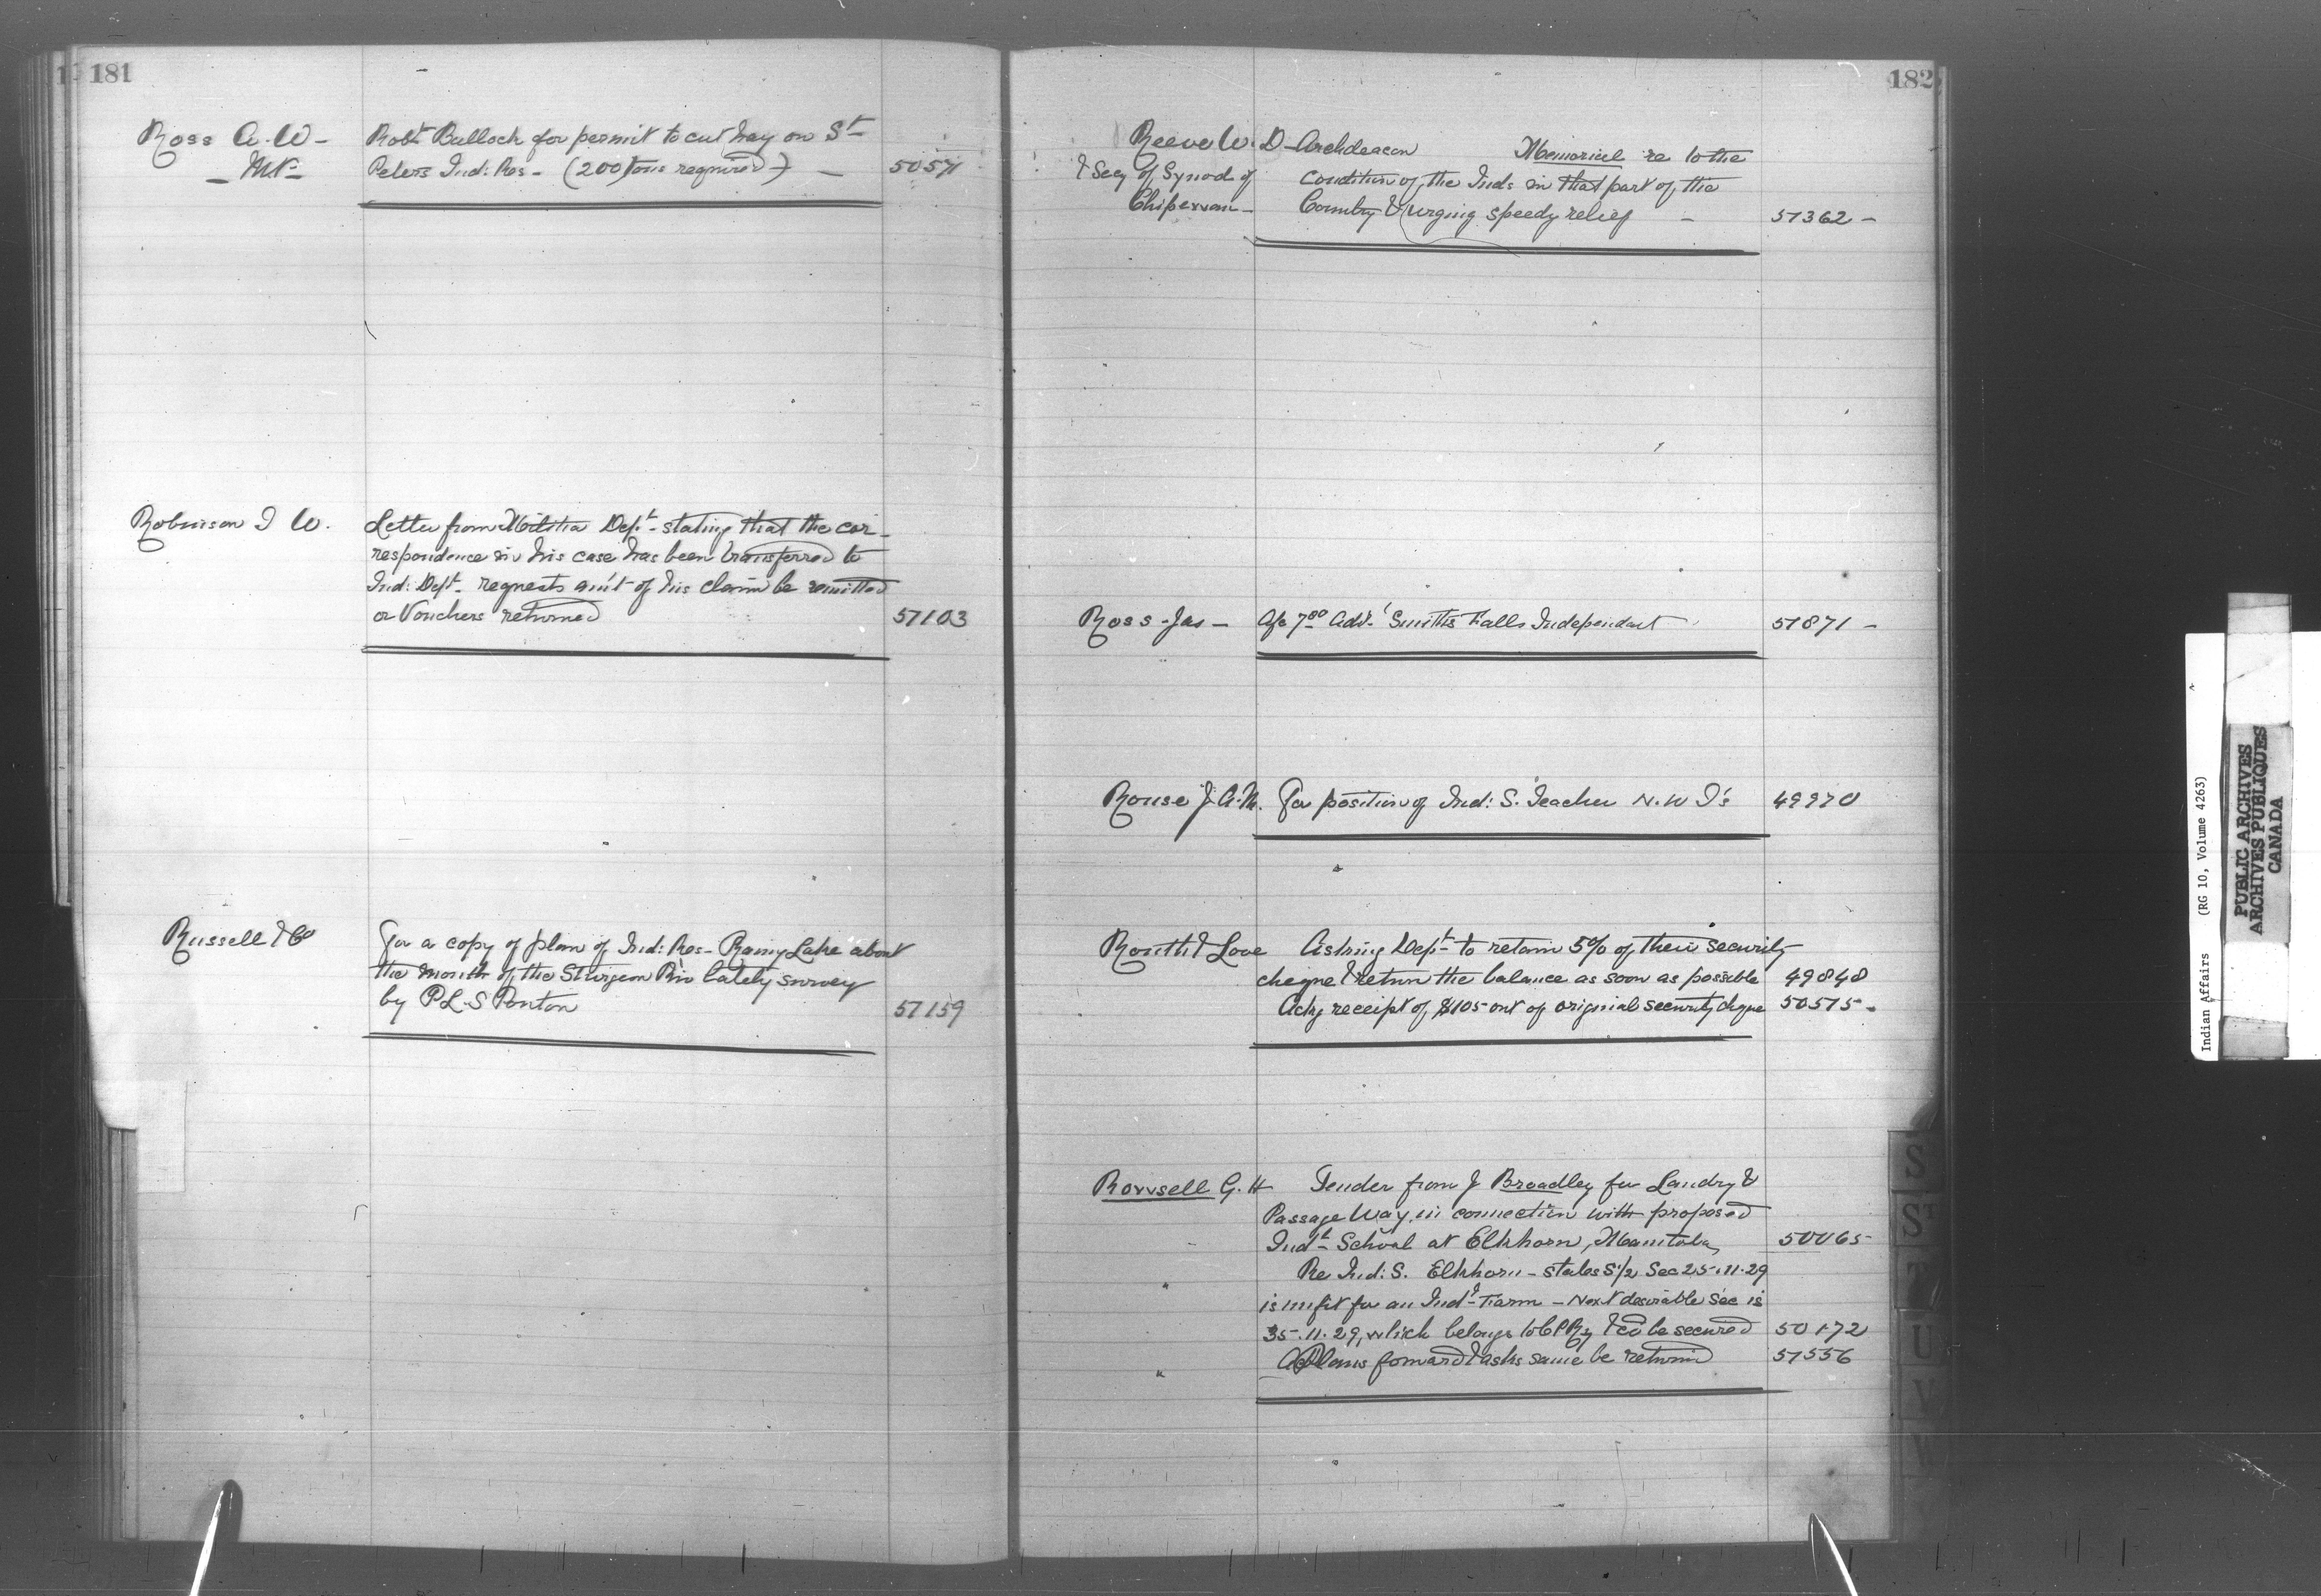 181
Ross A. W - Robt Bulloch for permit to cut hay on St
- MP - Peters Ind: Res - (200 tons required) - 50571
Robinson J W. Letter from Militia Dept - stating that the cor-
respondence in his case has been transferred to
Ind: Dept - requests am't of his claim be remitted
or Vouchers returned 51103
Russell & Co For a copy of plan of Ind: Res - Rainy Lake about
the mouth of the Sturgeon Riv lately survey
by P.L.S Ponton 51159
182
Reeve W. D - Archdeacon Memorial re to the
& Secy of Synod of condition of the Inds in that part of the
Country & urging speedy relief - 51362 -
Ross - Jas - A/c 7.80 Advt Smith's Falls Independent 51871 -
Rouse J. A. M. For position of Ind: S. Teacher N. W T's 49970
Routh & Love Asking Dept - to retain 5% of their security
cheque & return the balance as soon as possible 49848
Ackg receipt of $105 out of original security cheque 50515 -
Rowsell G. H Tender from J Broadley for Landry &
Passage Way in connection with proposed
Indl - School at Elkhorn, Manitoba 50065
" Re Ind: S. Elkhorn - states S 1/2 Sec 25. 11. 29
is unfit for an Indl - Farm - Next desirable Sec is
35. 11. 29, which belongs to CPRy & cd be secured 50172
" Plans forward & asks same be returnd 51556
S
ST
T
U
V
W
Indian Affairs (RG 10, Volume 4263)
PUBLIC ARCHIVES
ARCHIVES PUBLIQUES
CANADA